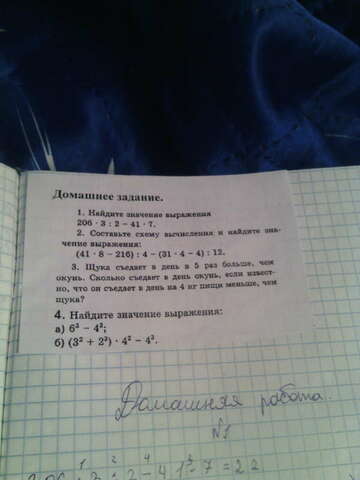 Домашнее задание.
1. Найдите значение выражения
206 · 3 : 2 – 41 · 7.
2. Составьте схему вычисления и найдите зна-
чение выражения:
(41 · 8 – 216) : 4 – (31 · 4 – 4) : 12.
3. Щука съедает в день в 5 раз больше, чем
окунь. Сколько съедает в день окунь, если извест-
но, что он съедает в день на 4 кг пищи меньше, чем
щука?
4. Найдите значение выражения:
а) 6³ – 4³;
б) (3² + 2²) · 4² – 4³.
Домашняя работа.
№1